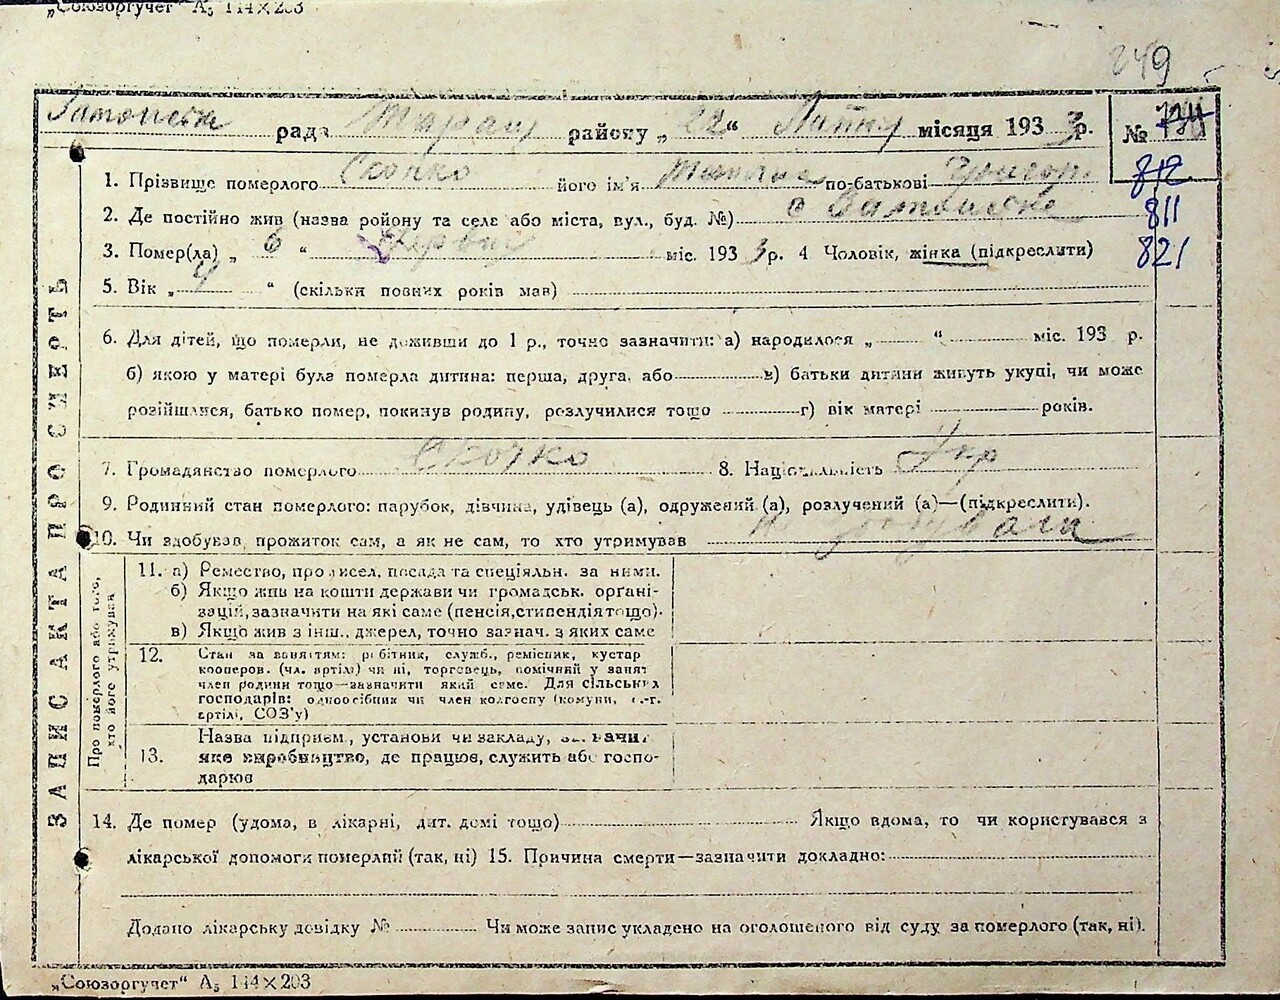 „Союзоргучет" А₅ 144×203
249
рада район у „22" Липня місяця 1933 р. №
1. Прізвище померлого його ім'я по-батькові Григор.
812
2. Де постійно жив (назва ройону та села або міста, вул., буд. №) с
811
3. Помер(ла) „ 6 " Червня міс. 193 3 р. 4 Чоловік, жінка (підкреслити)
821
5. Вік „ 4 " (скільки повних років мав)
6. Для дітей, що померли, не доживши до 1 р., точно зазначити: а) народилося „ " міс. 193 р.
б) якою у матері була померла дитина: перша, друга, або в) батьки дитини живуть укупі, чи може
розійшлися, батько помер, покинув родину, розлучилися тощо г) вік матері років.
7. Громадянство померлого 8. Національність Укр
9. Родинний стан померлого: парубок, дівчина, удівець (а), одружений (а), розлучений (а)—(підкреслити).
10. Чи здобував прожиток сам, а як не сам, то хто утримував
ЗАПИС АКТА ПРО СМЕРТЬ
Про померлого або того, хто його утримував
11. а) Ремество, промисел, посада та спеціяльн. за ними.
б) Якщо жив на кошти держави чи громадськ. орґані-
зацій, зазначити на які саме (пенсія, стипендія тощо).
в) Якщо жив з інш., джерел, точно зазнач. з яких саме
12. Стан за заняттям: робітник, служб., ремісник, кустар
кооперов. (чл. артілі) чи ні, торговець, помічний у занят
член родини тощо—зазначити який саме. Для сільських
господарів: одноосібник чи член колгоспу (комуни, с.-г.
артілі, СОЗ'у)
13. Назва підприєм., установи чи закладу, зазначит
яке виробництво, де працює, служить або госпо-
дарює
14. Де помер (удома, в лікарні, дит. домі тощо) Якщо вдома, то чи користувався з
лікарської допомоги померлий (так, ні) 15. Причина смерти—зазначити докладно:
Додано лікарську довідку № Чи може запис укладено на оголошеного від суду за померлого (так, ні).
„Союзоргучет" А₅ 144×203